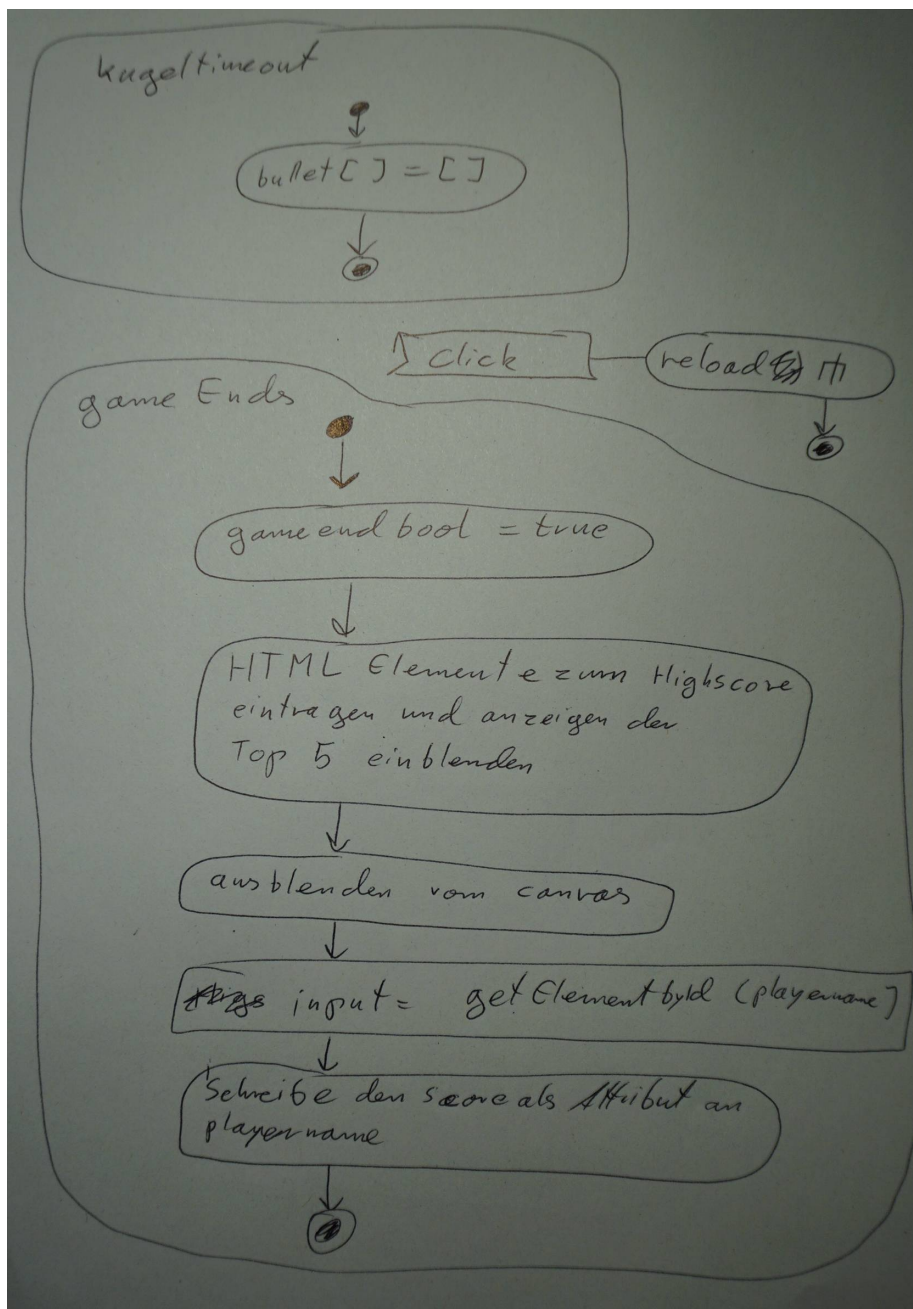 kugeltimeout
bullet [ ] = [ ]
Click
reload
game Ends
gameendbool = true
HTML Elemente zum Highscore
eintragen und anzeigen der
Top 5 einblenden
ausblenden vom canvas
input = getElementbyId (playername)
Schreibe den Score als Attribut an
playername